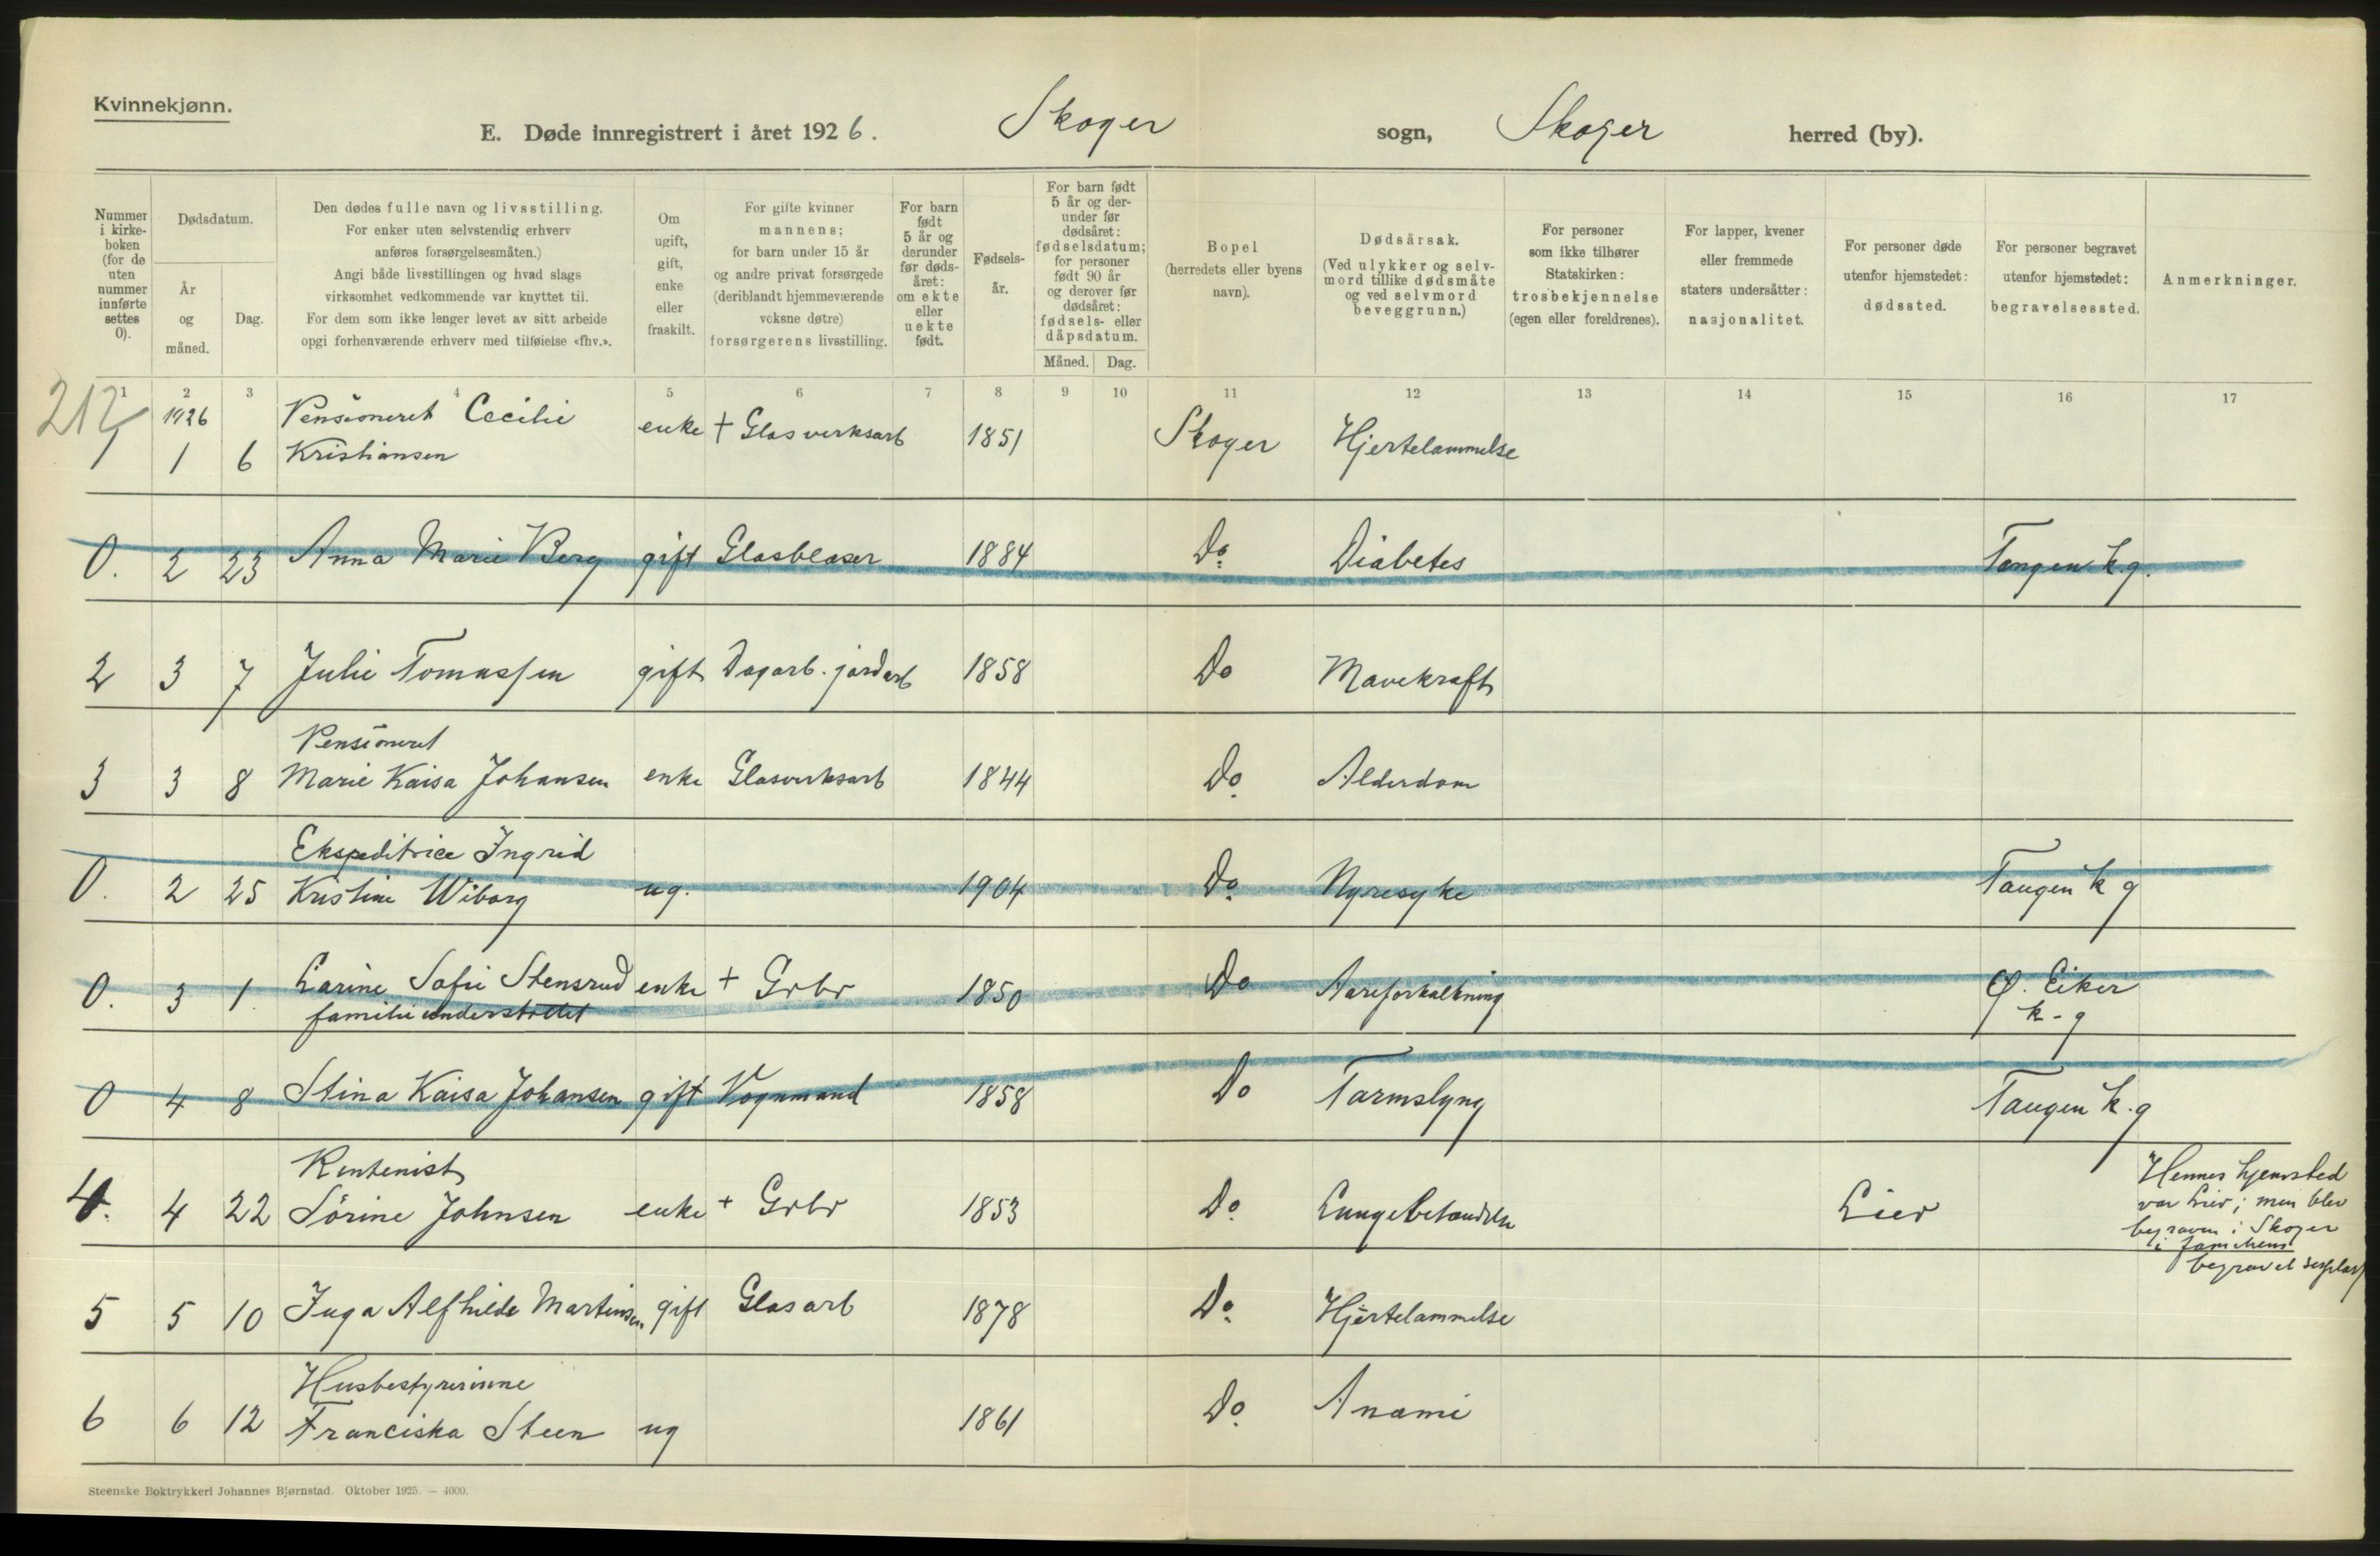 Kvinnekjønn.
E. Døde innregistrert i året 1926. Skoger sogn, Skoger herred (by).
Nummer i kirke-boken (for de uten nummer innførte settes 0).
Dødsdatum.
År og måned.
Dag.
Den dødes fulle navn og livsstilling.
For enker uten selvstendig erhverv
anføres forsørgelsesmåten.)
Angi både livsstillingen og hvad slags
virksomhet vedkommende var knyttet til.
For dem som ikke lenger levet av sitt arbeide
opgi forhenværende erhverv med tilføielse «fhv.».
Om ugift, gift, enke eller fraskilt.
For gifte kvinner
mannens;
for barn under 15 år
og andre privat forsørgede
(deriblandt hjemmeværende
voksne døtre)
forsørgerens livsstilling.
For barn født 5 år og derunder før døds-året: om ekte eller uekte født.
Fødsels-år.
For barn født
5 år og der-
under før
dødsåret:
fødselsdatum;
for personer
født 90 år
og derover før
dødsåret:
fødsels- eller
dåpsdatum.
Måned. Dag.
Bopel
(herredets eller byens
navn).
Dødsårsak.
(Ved ulykker og selv-
mord tillike dødsmåte
og ved selvmord
beveggrunn.)
For personer
som ikke tilhører
Statskirken:
trosbekjennelse
(egen eller foreldrenes).
For lapper, kvener
eller fremmede
staters undersåtter:
nasjonalitet.
For personer døde
utenfor hjemstedet:
dødssted.
For personer begravet
utenfor hjemstedet:
begravelsessted.
Anmerkninger.
1 2 3 4 5 6 7 8 9 10 11 12 13 14 15 16 17
212
1926 Pensioneret Cecilie
1 1 6 Kristiansen enke + Glasverksarb 1851 Skoger Hjertelammelse
0. 2 23 Anna Marie Berg gift Glasblaser 1884 Do Diabetes Tangen k.g.
2 3 7 Julie Tomassen gift Dagarb. jordarb 1858 Do Mavekraft
Pensioneret
3 3 8 Marie Kaisa Johansen enke Glasverksarb 1844 Do Alderdom
Ekspeditrice Ingrid
0. 2 25 Kristine Wiborg ug. 1904 Do Nyresyke Tangen k g
0. 3 1 Larine Sofie Stensrud enke + Grbr 1850 Do Aareforkalkning Ø. Eiker
familie understøttet k-g
0 4 8 Stina Kaisa Johansen gift Vognmand 1858 Do Tarmslyng Tangen k.g
Rentenist
4. 4 22 Sörine Johnsen enke + Grbr 1853 Do Lungebetændelse Lier
Hennes hjemsted
var Lier; men blev
begraven i Skoger
i familiens
5 5 10 Inga Alfhilde Martinsen gift Glasarb 1878 Do Hjertelammelse
Husbestyrerinne
6 6 12 Franciska Steen ug 1861 Do Anæmi
Steenske Boktrykkeri Johannes Bjørnstad. Oktober 1925. — 4000.